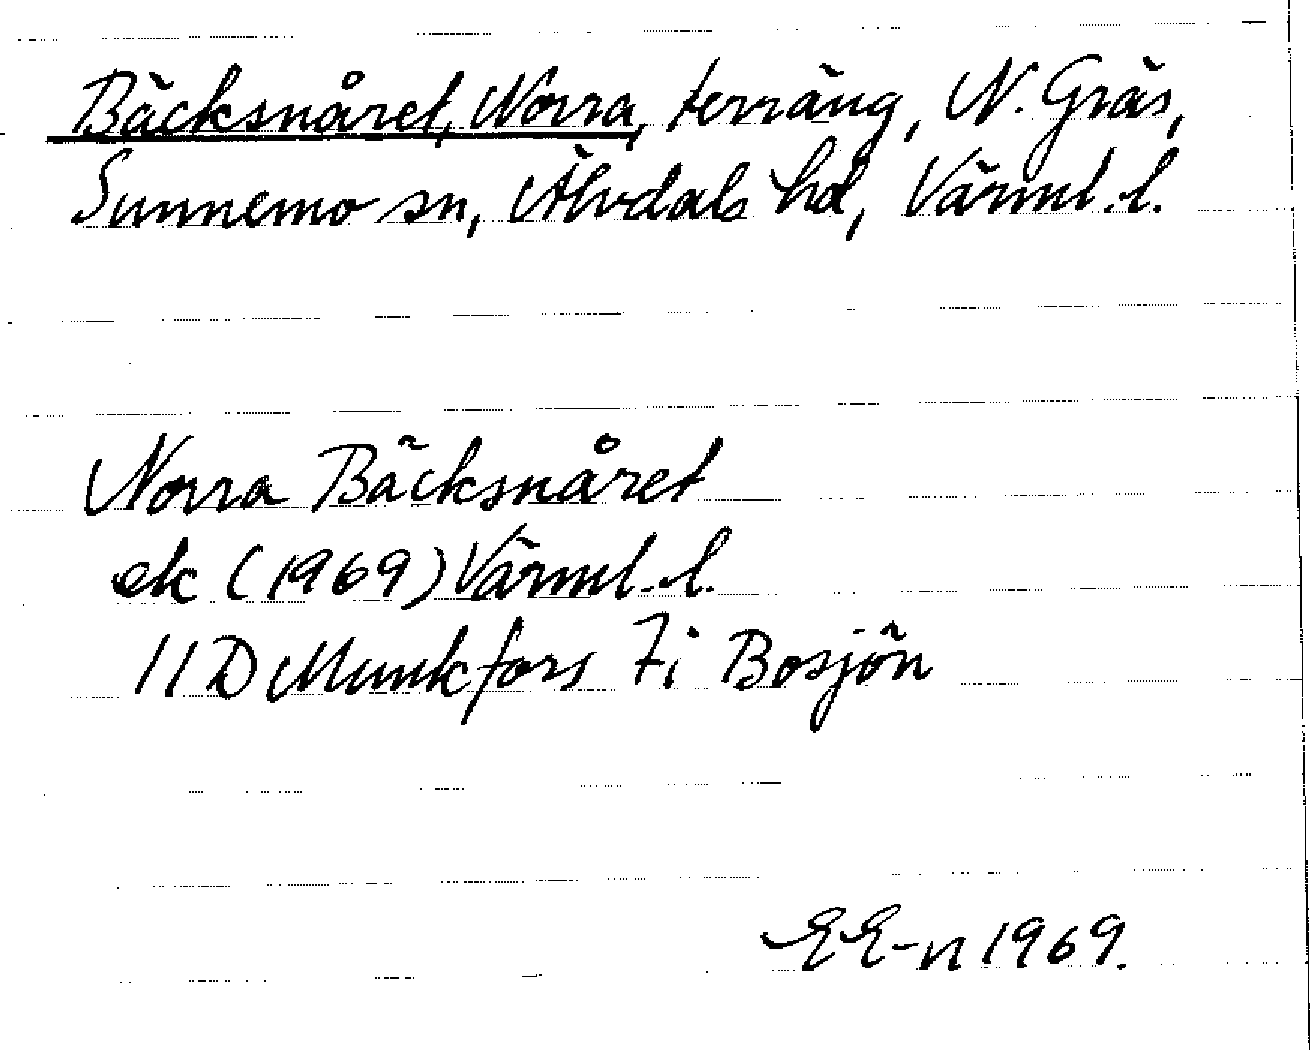 Bäcksnåret, Norra, terräng, N. Gräs,
Sunnemo sn, Älvdals hd, Värml. l.
Norra Bäcksnåret
ek (1969) Värml. l.
11D Munkfors 7i Bosjön
EE-n 1969.